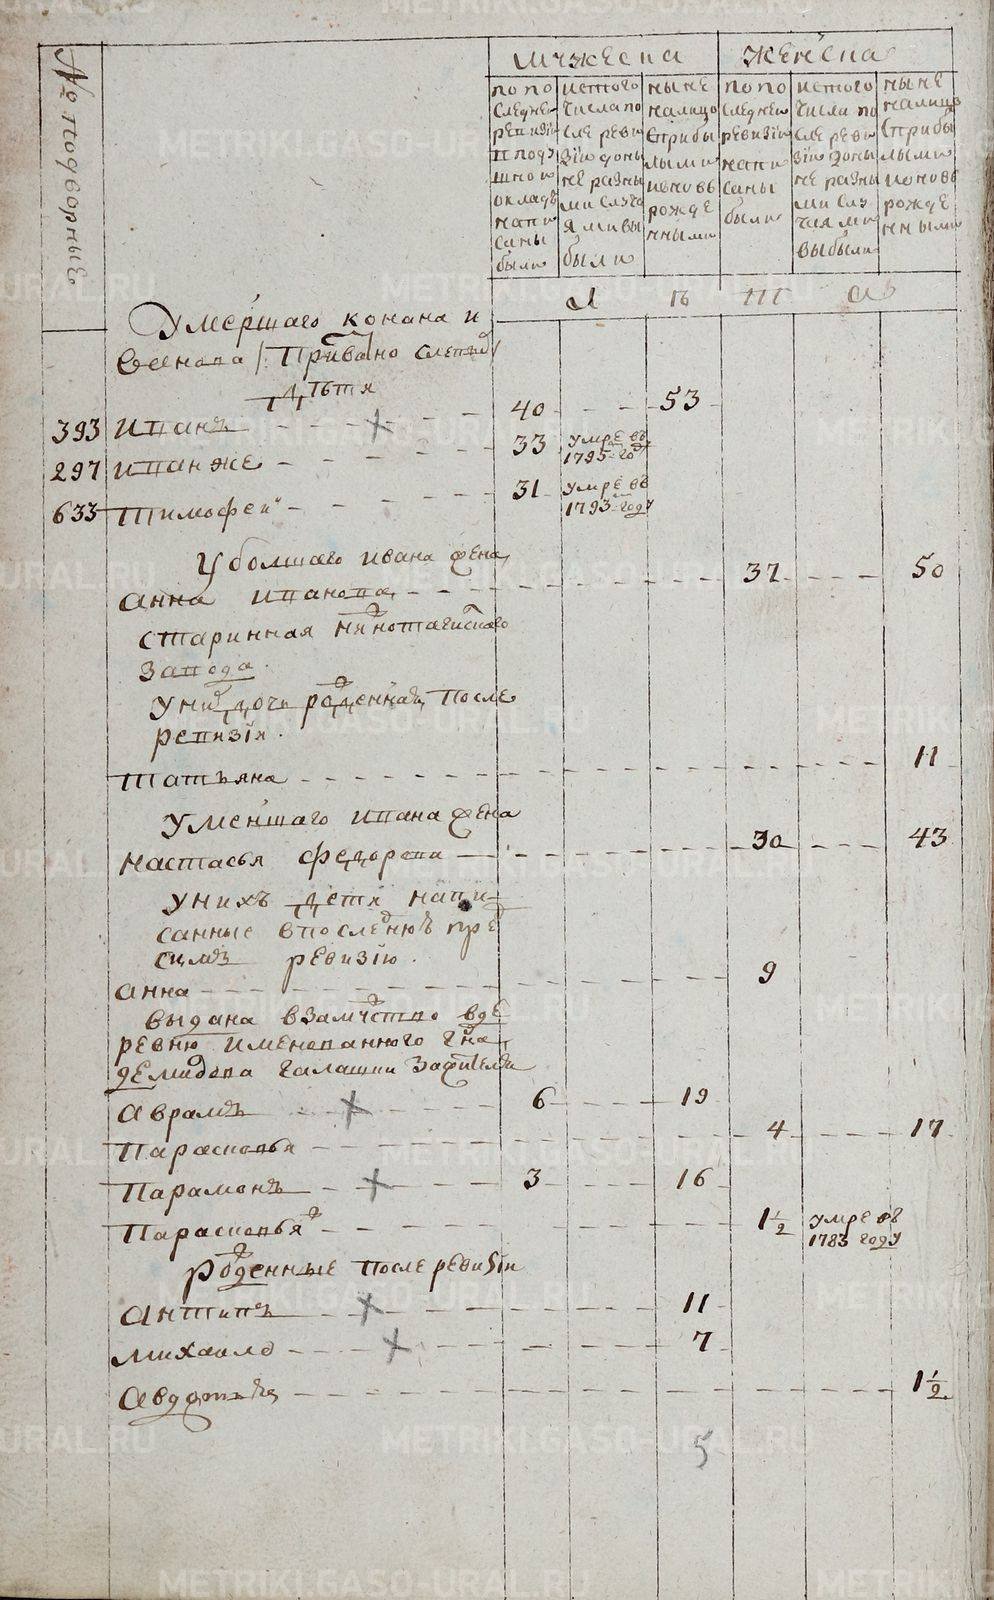 № подворные
мужеска
женска
по последней ревизии и подушной окладъ написаны были
ис того числа после ревизiи до ны не разными случаями выбыли
ныне налицо с прибылыми и новорожденными
по последней ревизiи написаны были
ис того числа после ревизiи до ны не разными случаями выбыли
ныне налицо с прибылыми и новорожденными
Л Ѣ Т А
Умершаго конана и
дѣтя
393 иванъ 40 53
297 иванже 33 умре въ 1795 году
633 тимофей 31 умре въ 1793 году
У болшаго ивана жена
анна иванова 37 50
старинная нижнотагилского
завода
у них дочь рожденная после
ревизiи.
татьяна 11
У меншаго ивана жена
настасья федорова 30 43
у нихъ дети напи
санные в последнюю пред
симъ ревизiю.
анна 9
выдана в замужство в де
ревню именованного гна
демидова галашки
аврамъ 6 19
парасковья 4 17
парамонъ 3 16
парасковья ж 1½ умре въ 1783 году
рожденные после ревизiи
антипъ 11
михаило 7
авдотья 1½
5
METRIKI.GASO-URAL.RU